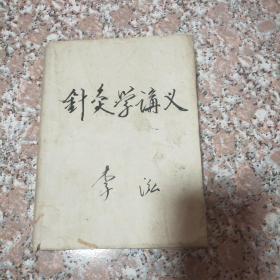 針灸学講义
李泓